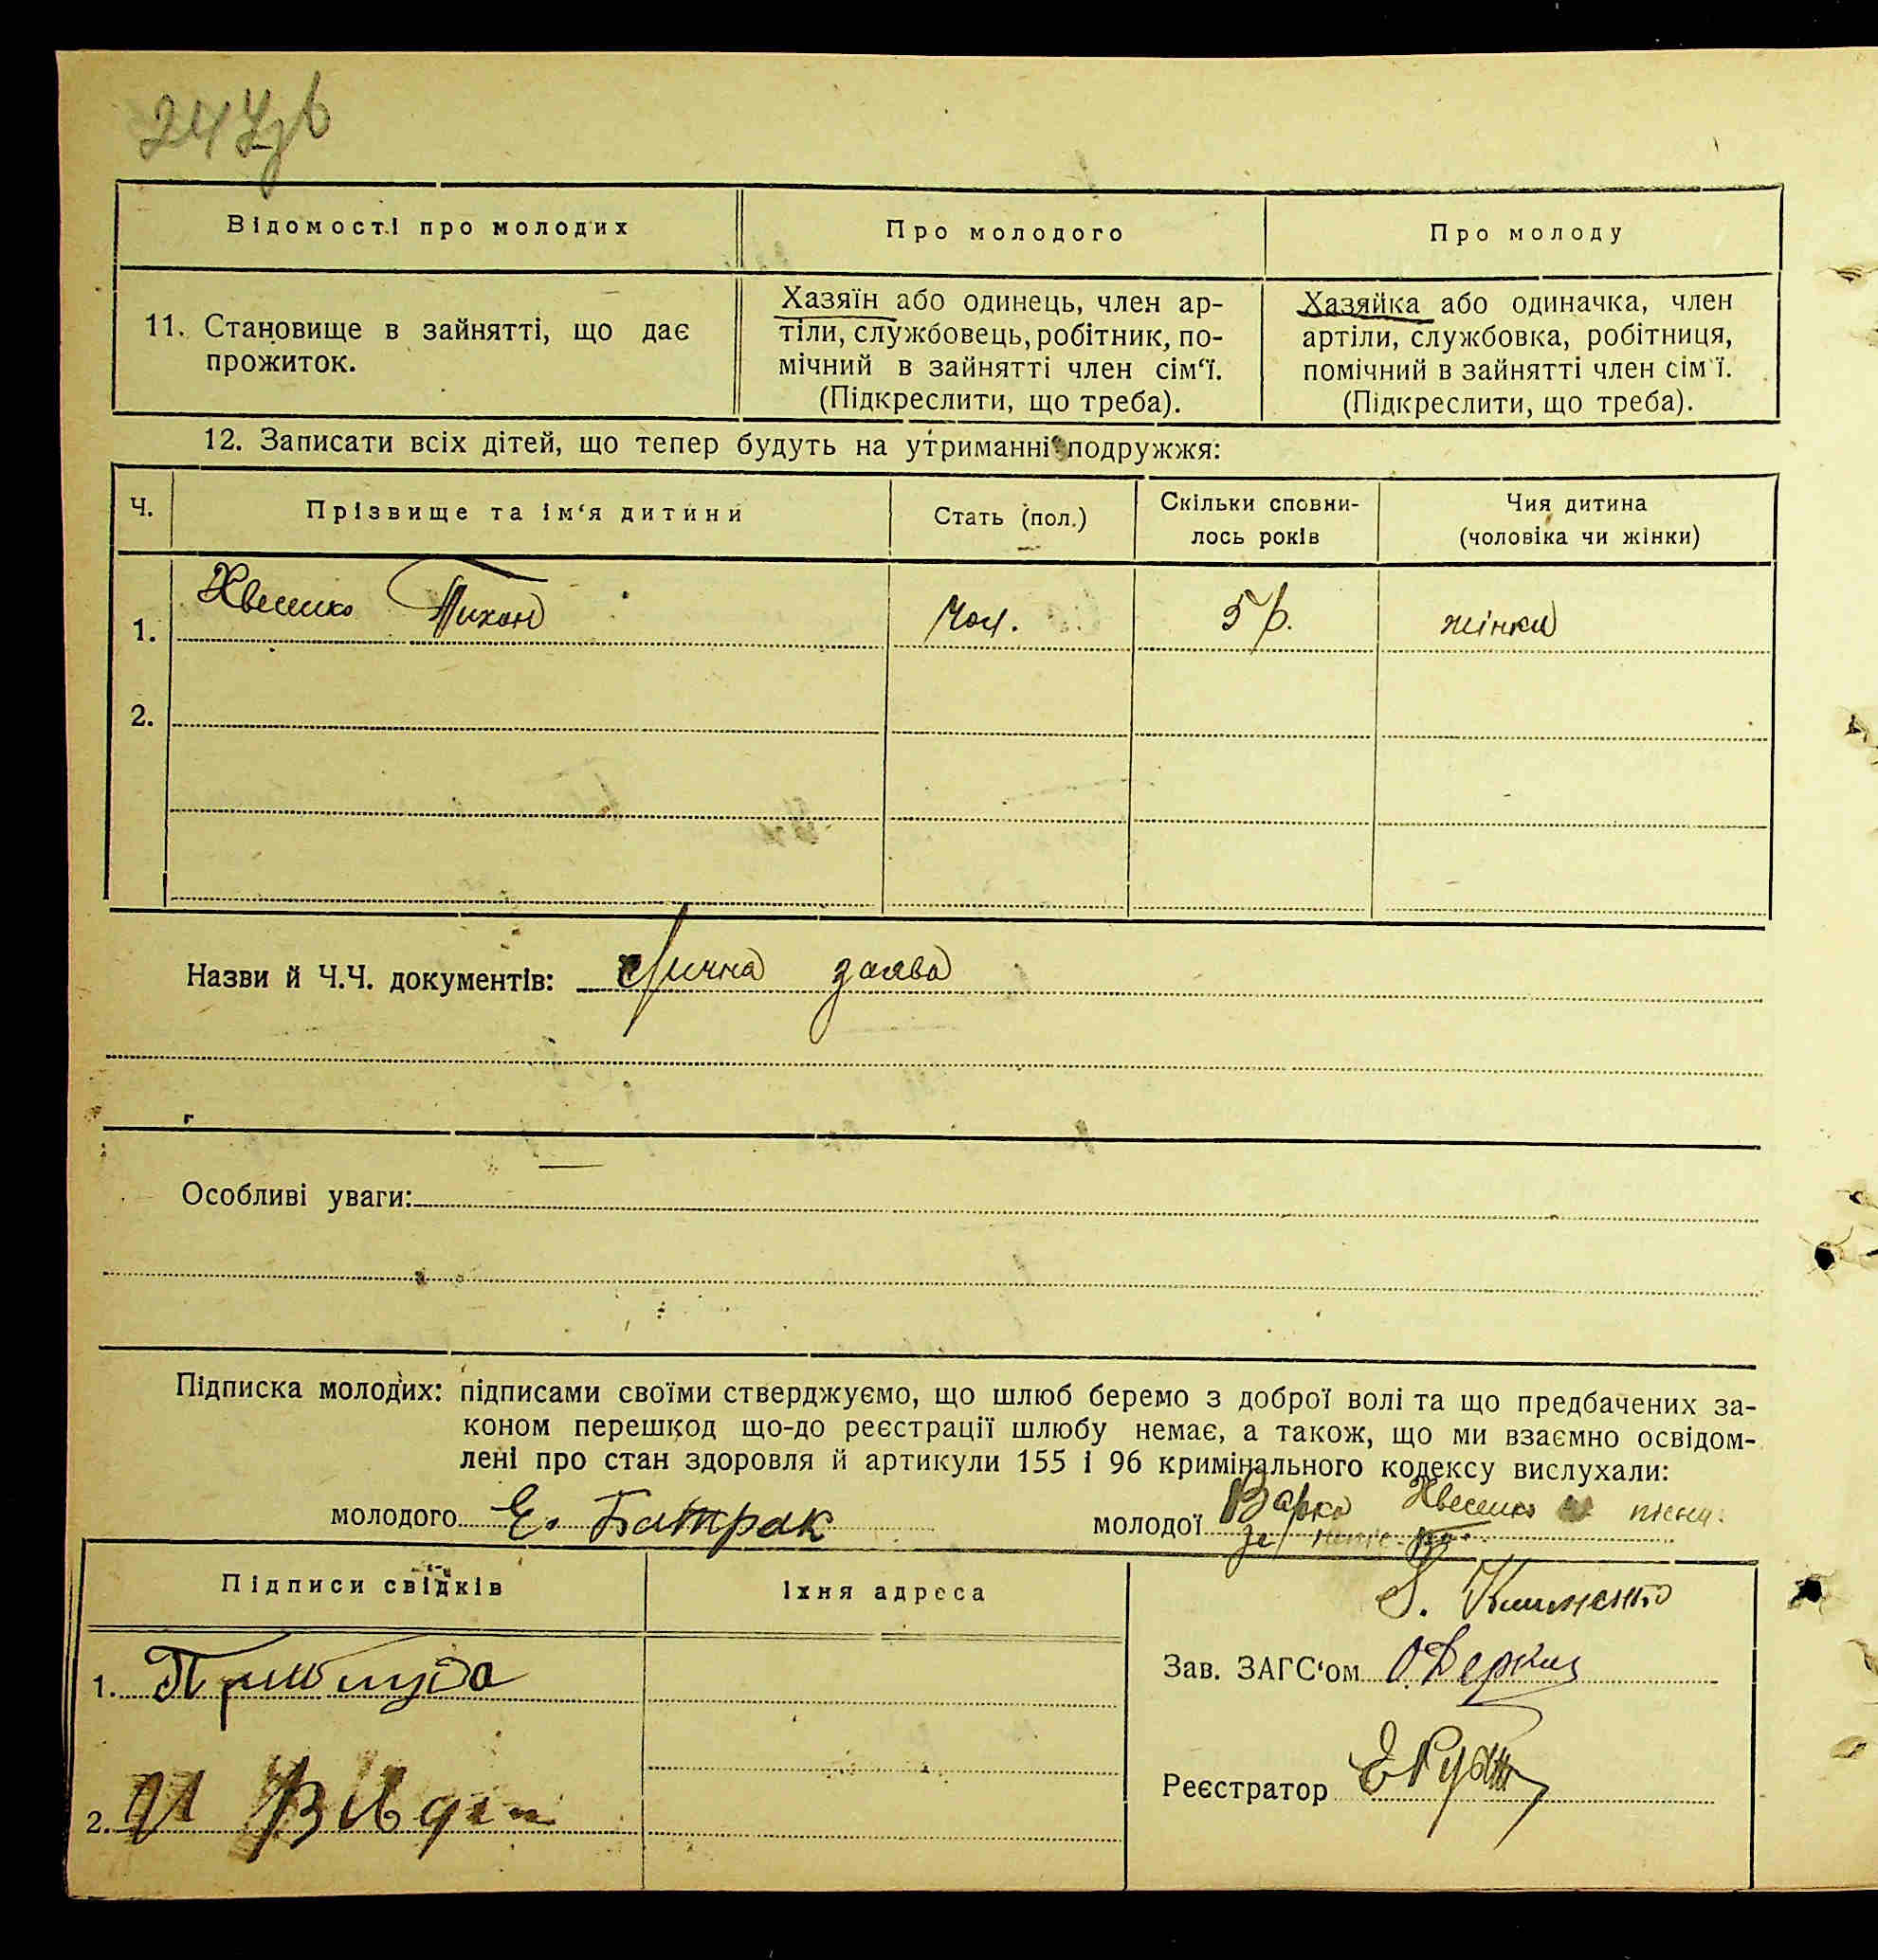 247
Відомості про молодих
Про молодого
Про молоду
11. Становище в зайнятті, що дає
прожиток.
Хазяїн або одинець, член ар-
тіли, службовець, робітник, по-
мічний в зайнятті член сім‘ї.
(Підкреслити, що треба).
Хазяйка або одиначка, член
артіли, службовка, робітниця,
помічний в зайнятті член сім‘ї.
(Підкреслити, що треба).
12. Записати всіх дітей, що тепер будуть на утриманні подружжя:
Ч.
Прізвище та ім‘я дитини
Стать (пол.)
Скільки сповни-
лось років
Чия дитина
(чоловіка чи жінки)
1. Тихон
Чол.
5 р.
жінки
2.
Назви й Ч.Ч. документів: Лична заява
Особливі уваги:
Підписка молодих: підписами своїми стверджуємо, що шлюб беремо з доброї волі та що предбачених за-
коном перешкод що-до реєстрації шлюбу немає, а також, що ми взаємно освідом-
лені про стан здоровля й артикули 155 і 96 кримінального кодексу вислухали:
молодого Є. Батрак
молодої Варка
Підписи свідків
Їхня адреса
1.
2.
Зав. ЗАГС‘ом
Реєстратор